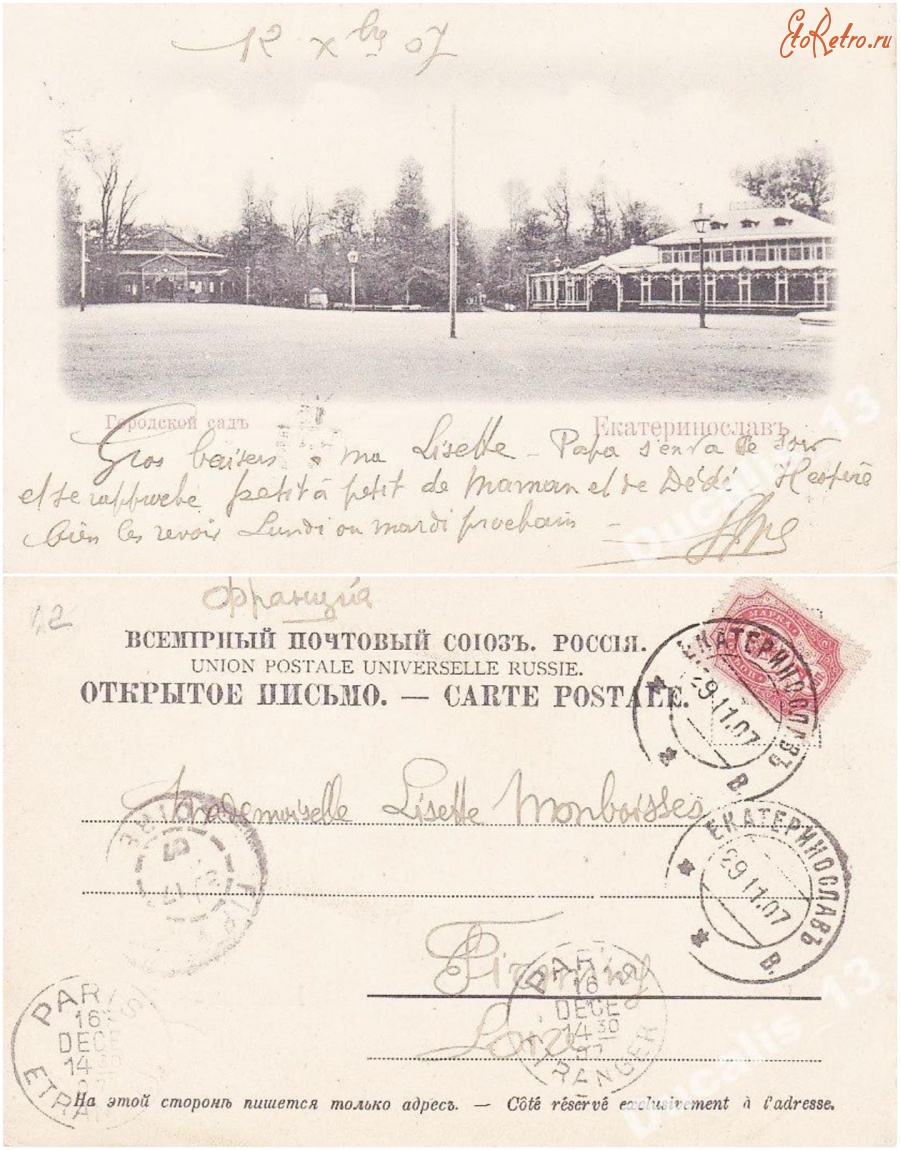 EtoRetro.ru
12 Xbre 07
Городской садъ
Екатеринославъ
Gros baisers à ma Lisette - Papa s'en va ce soir
et se rapproche petit à petit de Maman et de Dédé J'espère
bien les revoir Lundi ou mardi prochain -
Ducalis_13
Франция
ВСЕМІРНЫЙ ПОЧТОВЫЙ СОЮЗЪ. РОССІЯ.
UNION POSTALE UNIVERSELLE RUSSIE.
ОТКРЫТОЕ ПИСЬМО. — CARTE POSTALE.
МАРКА
ЕКАТЕРИНОСЛАВЪ
29 11.07
В.
Mademoiselle Lisette Monboisses
ЕКАТЕРИНОСЛАВЪ
29 11.07
В.
Firminy
Loire
PARIS
16
DECE
14 30
07
ETRANGER
PARIS
16
DECE
14 30
07
ETRA
Ducalis_13
На этой сторонѣ пишется только адресъ. — Côté réservé exclusivement à l'adresse.